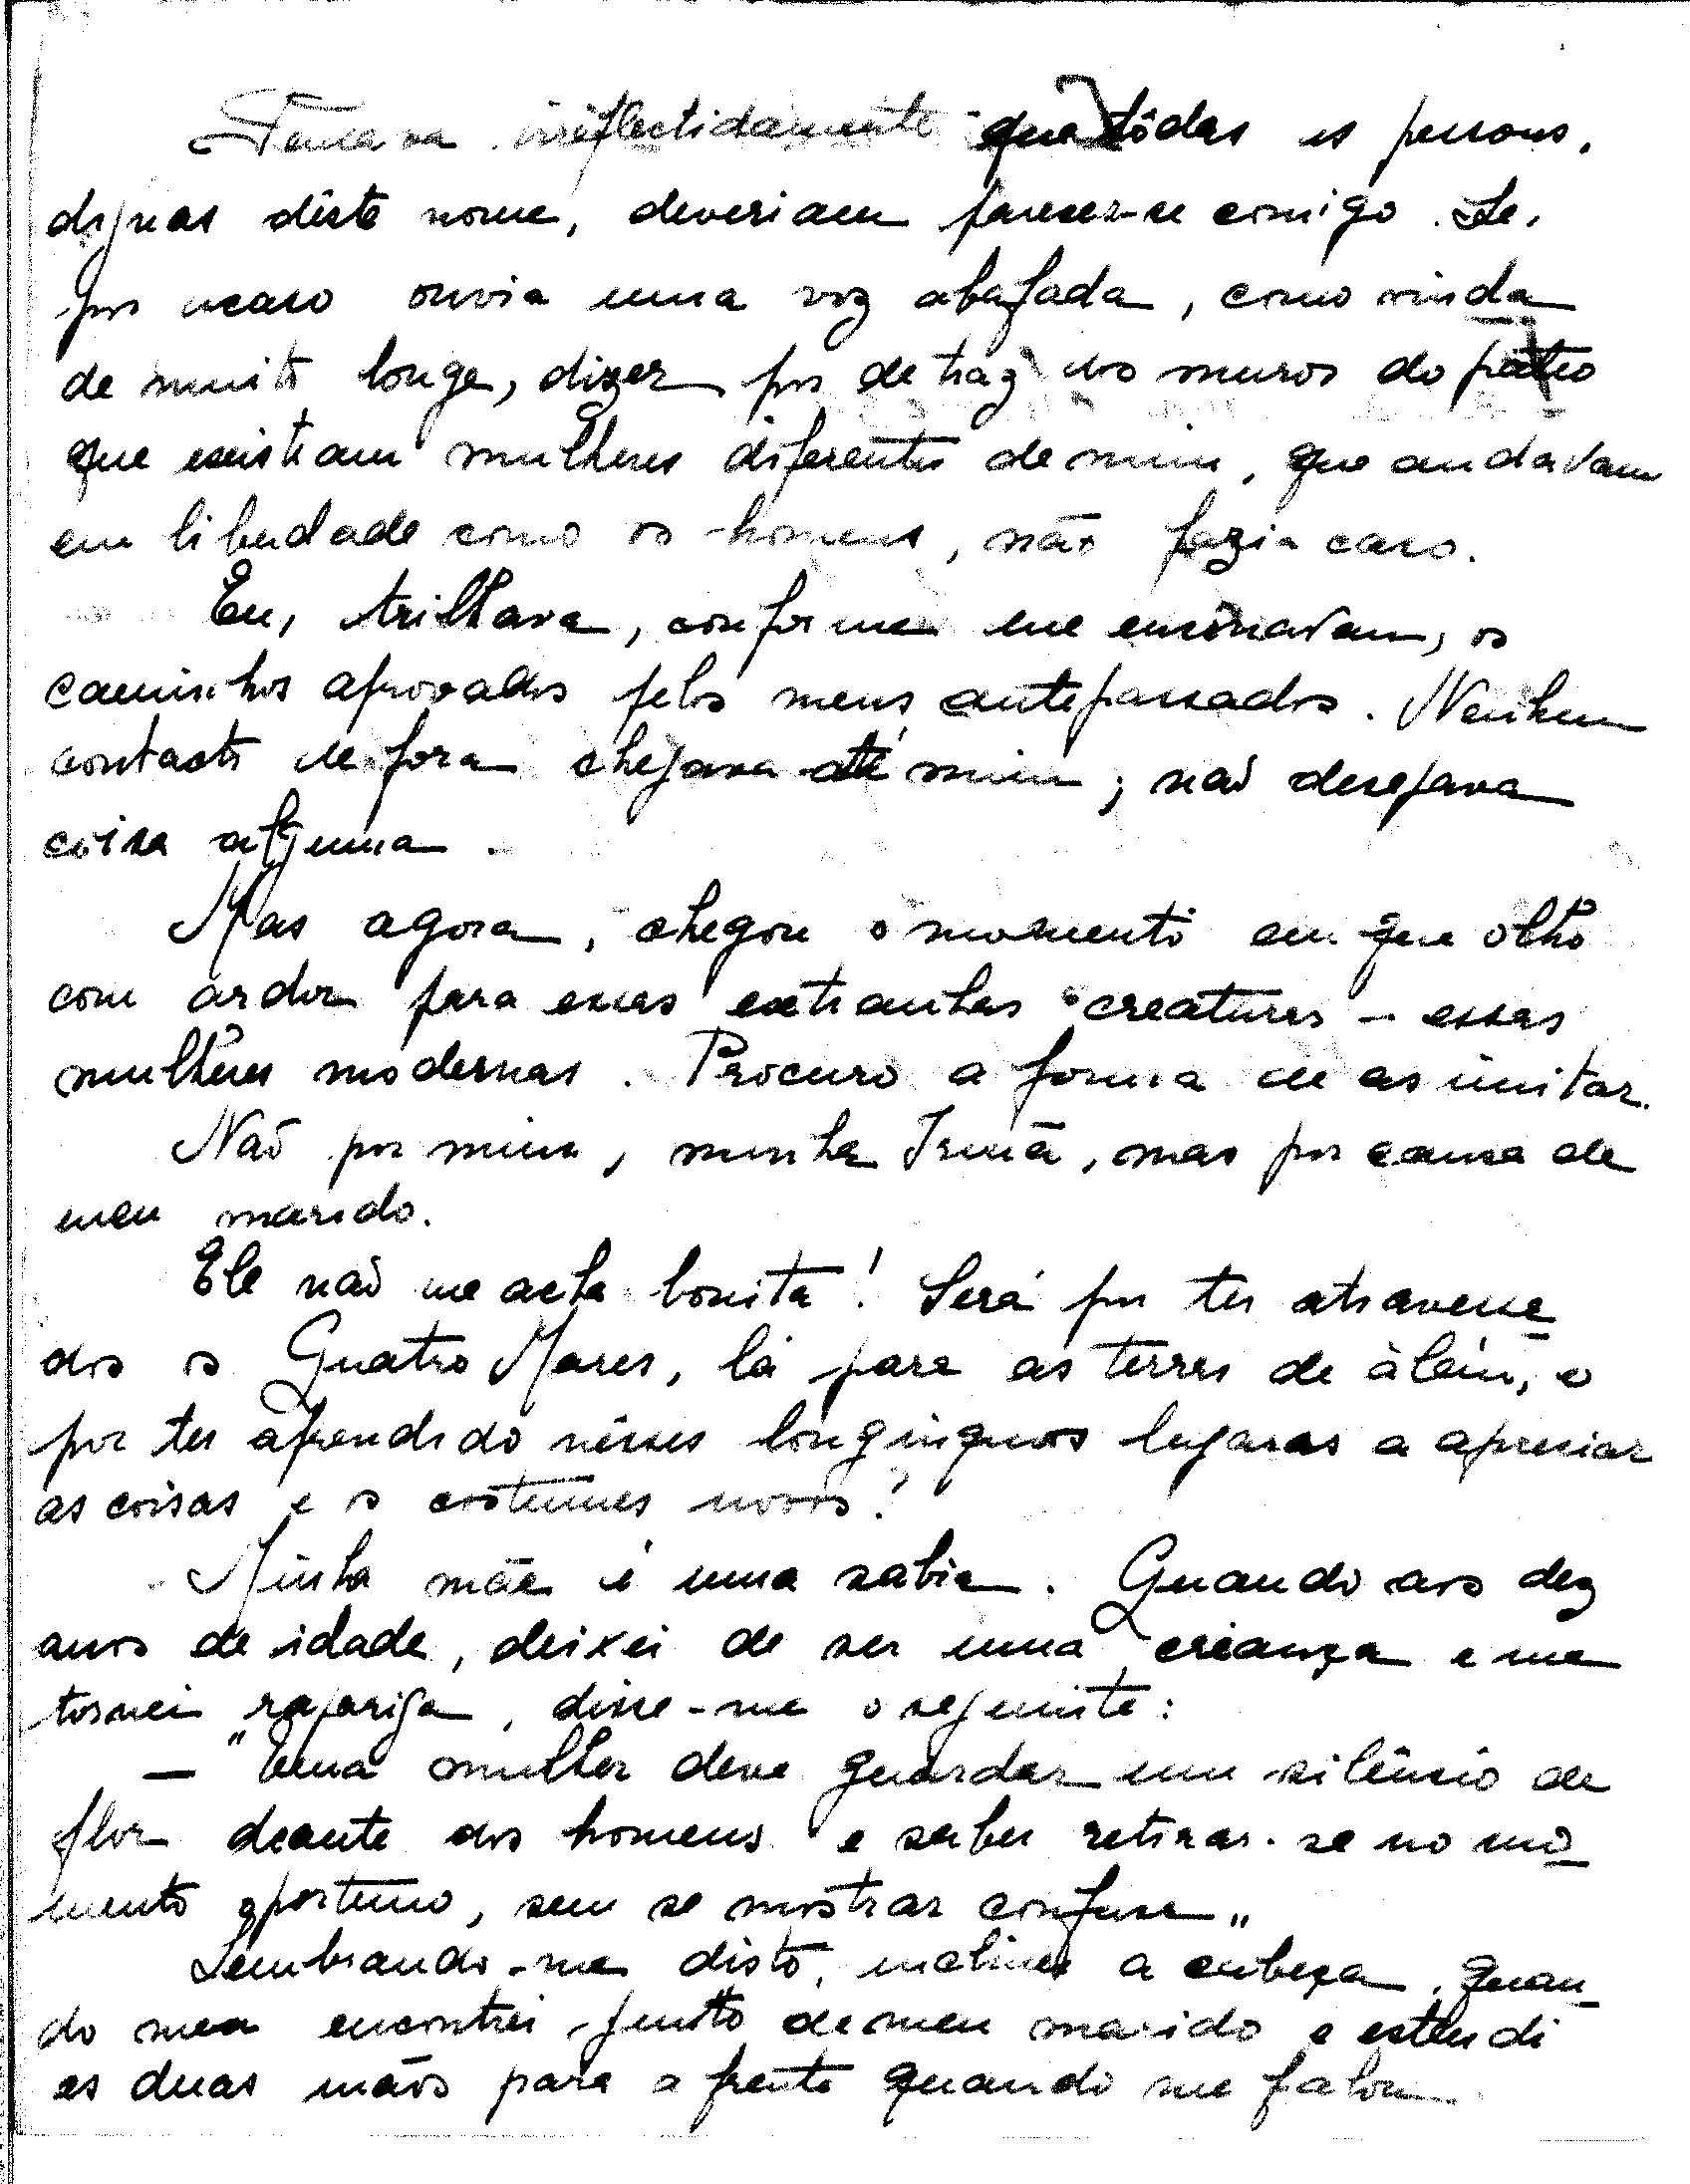 Pensava irreflectidamente que tôdas as pessoas,
dignas dêste nome, deveriam parecer-se comigo. Se,
por acaso ouvia uma voz abafada, como vinda
de muito longe, dizer por detraz dos muros do páteo
que existiam mulheres diferentes de mim, que andavam
em liberdade como os homens, não fazia caso.
Eu, trilhava, conforme me ensinavam, os
caminhos aprovados pelos meus antepassados. Nenhum
contacto de fora chegava até mim; não desejava
coisa alguma.
Mas agora, chegou o momento em que olho
com ardor para essas extranhas creaturas - essas
mulheres modernas. Procuro a forma de as imitar.
Não por mim, minha Irmã, mas por causa de
meu marido.
Ele não me acha bonita! Será por ter atravessa
dos os Quatro Mares, lá para as terras de àlém, e
por ter aprendido nêsses longinquos lugares a apreciar
as coisas e os costumes novos?
Minha mãe é uma sabia. Quando aos dez
anos de idade, deixei de ser uma criança e me
tornei rapariga, disse-me o seguinte:
— "Uma mulher deve guardar um silêncio de
flor deante dos homens e saber retirar-se no mo
mento oportuno, sem se mostrar confusa"
Lembrando-me disto, inclinei a cabeça, quan
do me encontrei junto de meu marido e estendi
as duas mãos para a frente quando me falou.